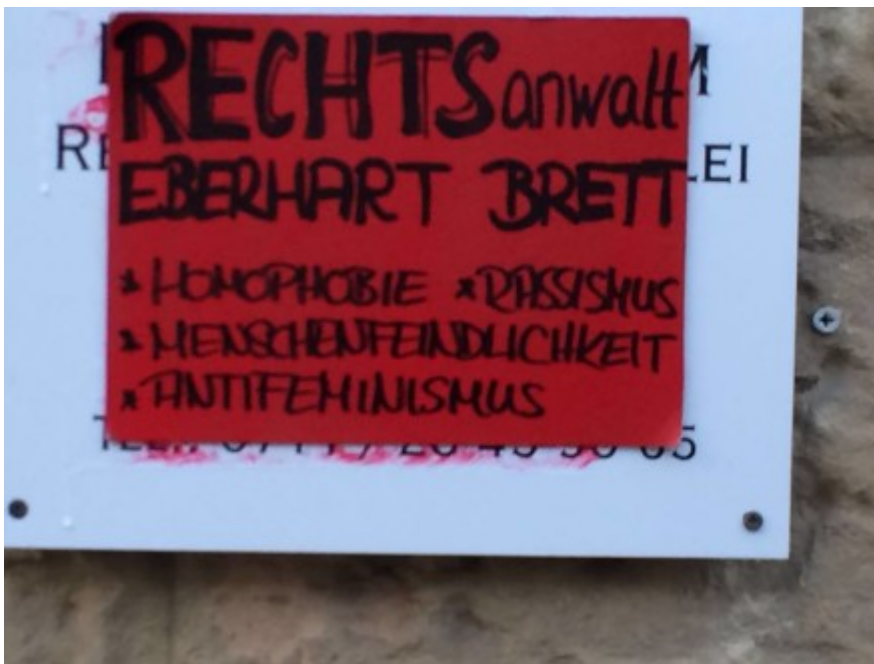 RECHTSanwalt
EBERHART BRETT
* HOMOPHOBIE * RASSISMUS
* MENSCHENFEINDLICHKEIT
* ANTIFEMINISMUS